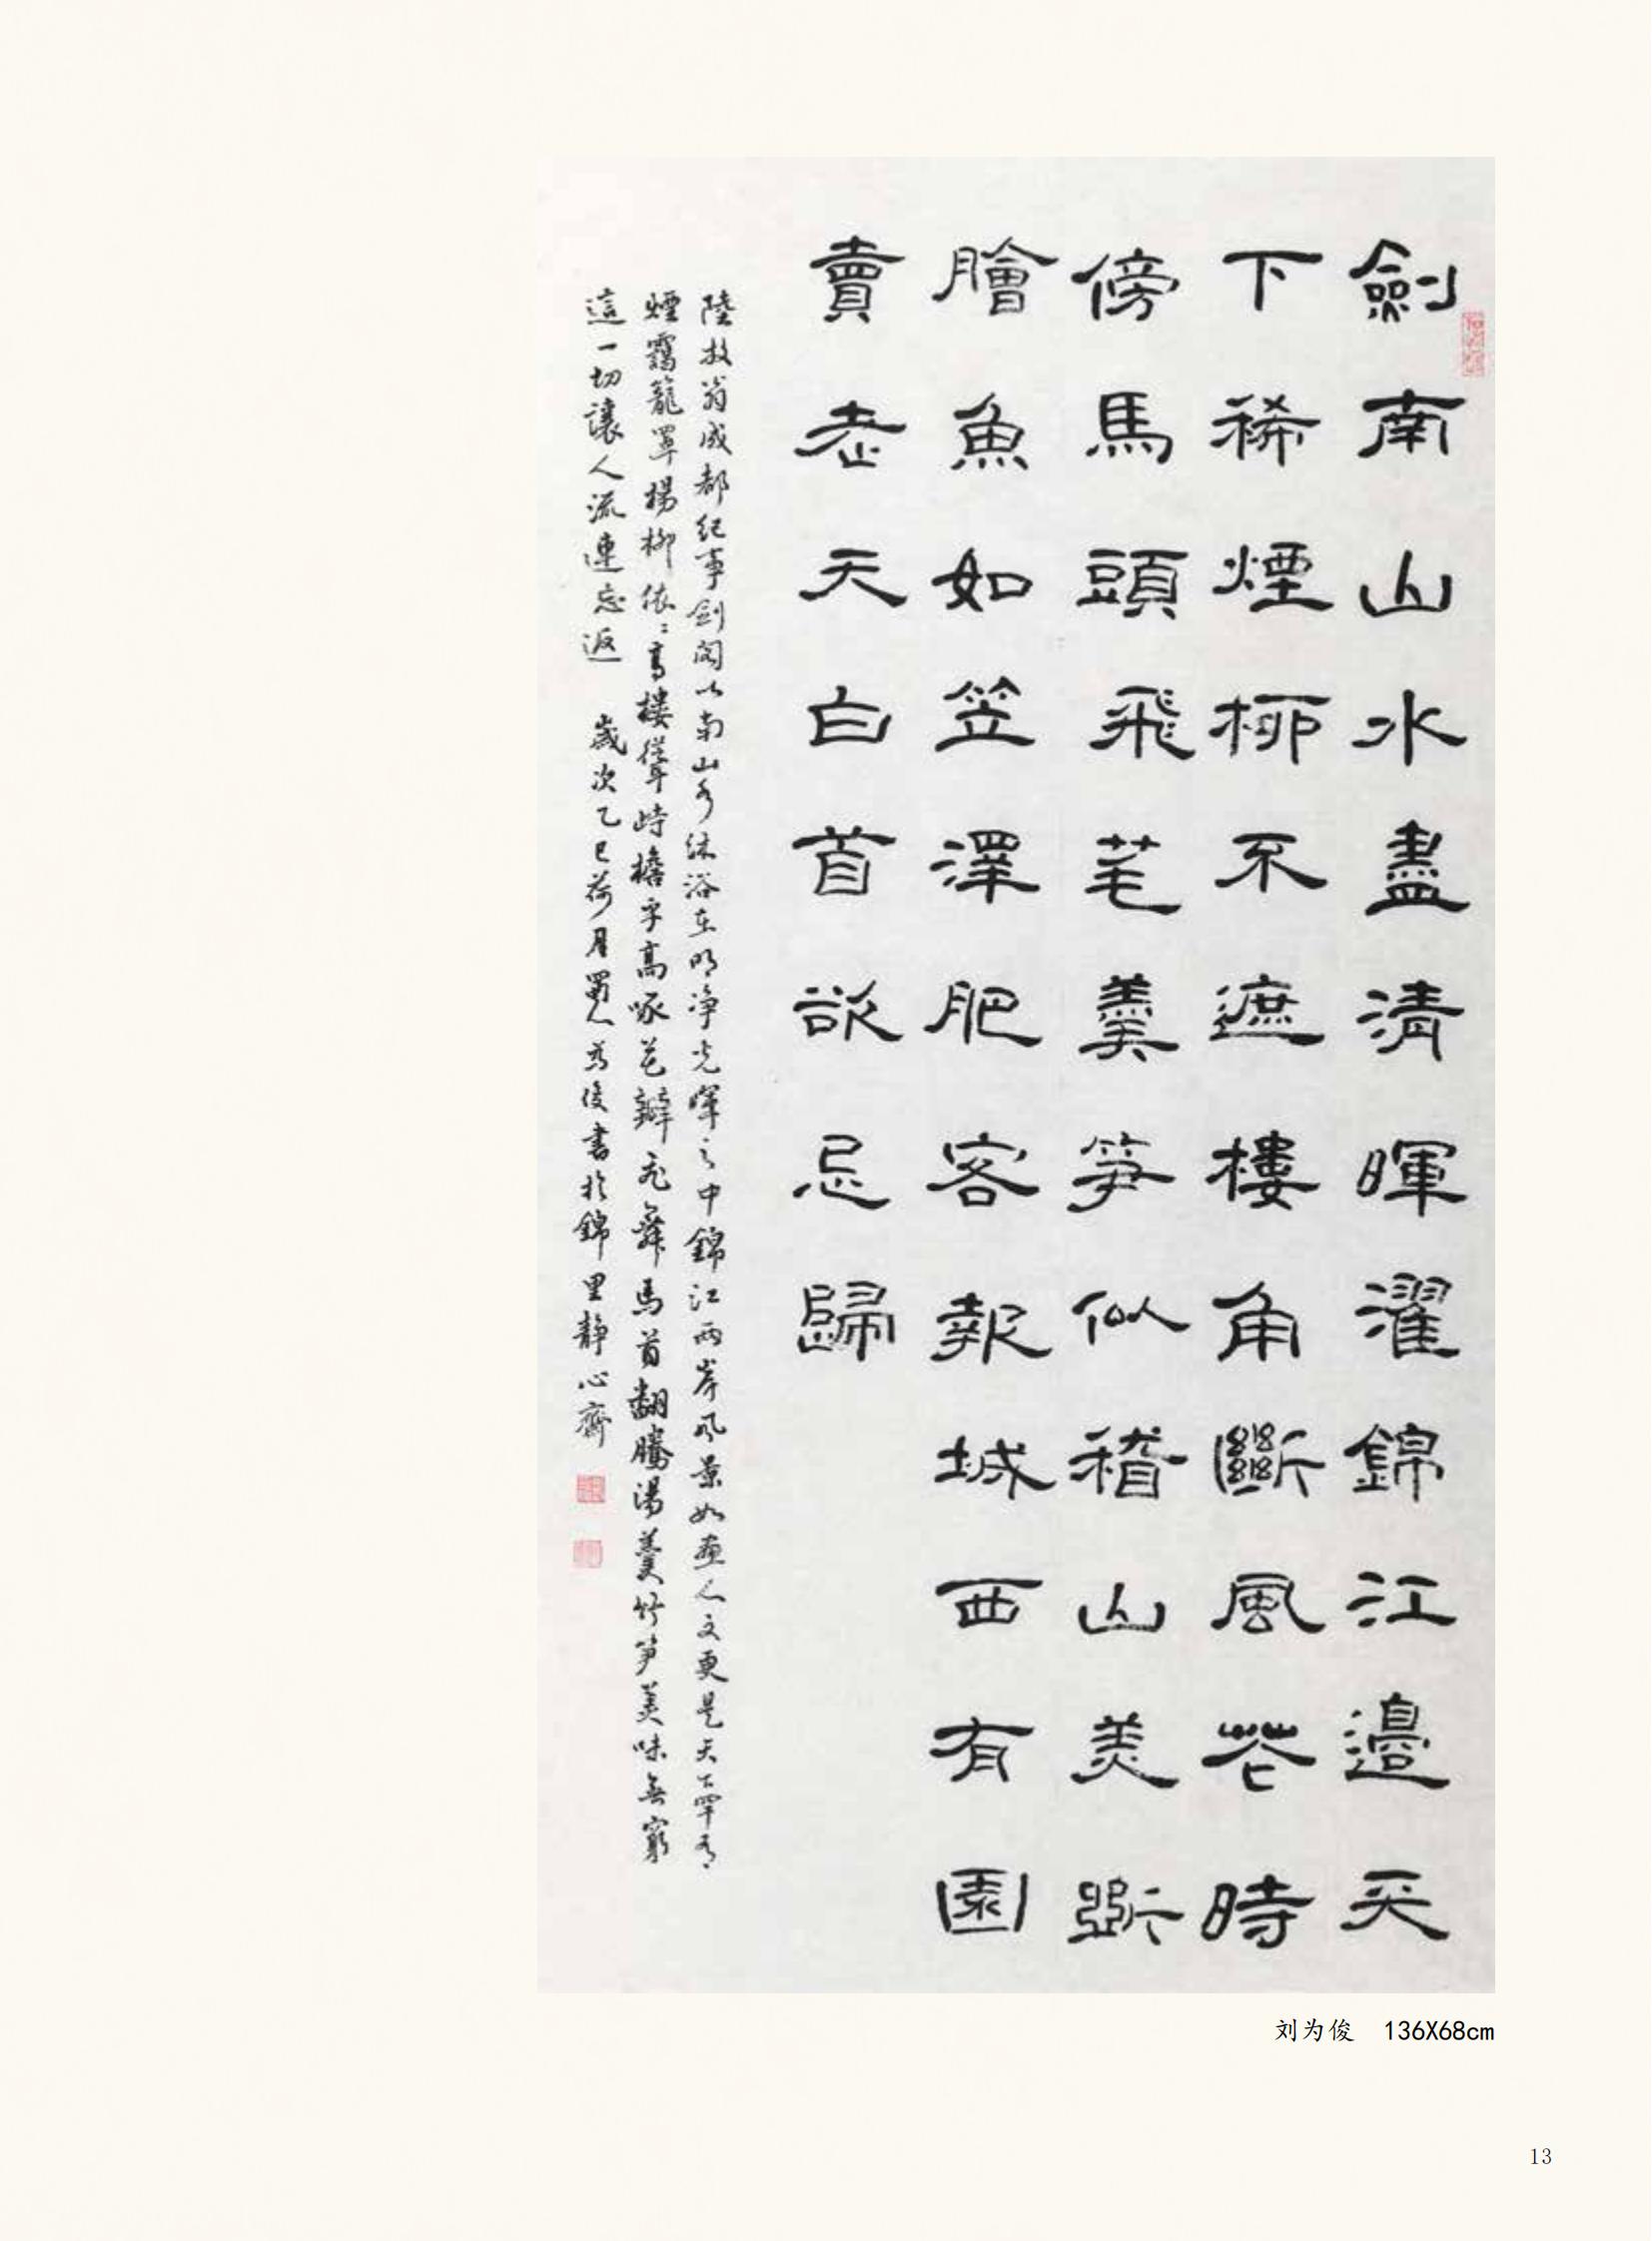 劍南山水盡清暉濯錦江邊天
下稀煙柳不遮樓角斷風花時
傍馬頭飛芼羹筍似稽山美斲
膾魚如笠澤肥客報城西有園
賣老夫白首欲忘歸
陸放翁成都紀事劍閣以南山水沐浴在明净光暉之中錦江兩岸風景如畫人文更是天下罕有
煙靄籠罩楊柳依々高樓聳峙檐牙高啄花瓣飛舞馬首翻騰湯羹竹筍美味無窮
這一切讓人流連忘返 歲次乙巳荷月蜀人為俊書於錦里靜心齋
刘为俊 136X68cm
13